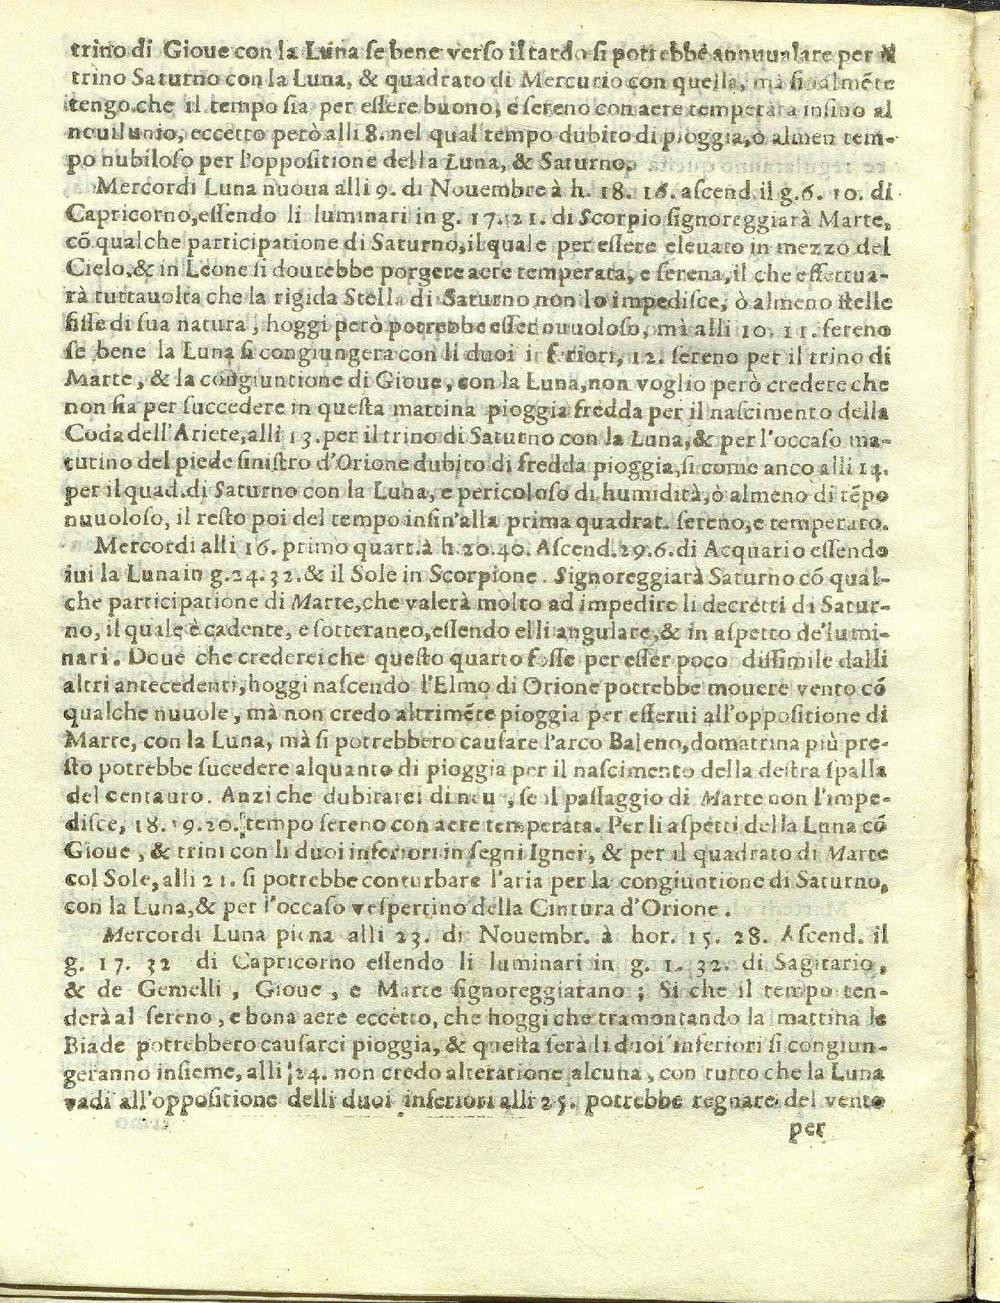 trino di Gioue con la Luna se bene verso il tardo si potrebbe annuualare per il
trino Saturno con la Luna, & quadrato di Mercurio con quella, mà finalmẽte
tengo che il tempo sia per essere buono, e sereno con aere temperata insino al
nouilunio, eccetto però alli 8. nel qual tempo dubito di pioggia, ò almen tem-
po nubiloso per l'oppositione della Luna, & Saturno.
Mercordi Luna nuoua alli 9. di Nouembre à h. 18. 16. ascend il g. 6. 10. di
Capricorno, essendo li luminari in g. 17. 21. di Scorpio signoreggiarà Marte,
cõ qualche participatione di Saturno, il quale per essere eleuato in mezzo del
Cielo, & in Leone si dourebbe porgere aere temperata, e serena, il che effettua-
rà tuttauolta che la rigida Stella di Saturno non lo impedisce, ò almeno stelle
fisse di sua natura, hoggi però potrebbe esser nuuoloso, mà alli 10. 11. sereno
se bene la Luna si congiungera con li duoi inferiori, 12. sereno per il trino di
Marte, & la congiuntione di Gioue, con la Luna, non voglio però credere che
non sia per succedere in questa mattina pioggia fredda per il nascimento della
Coda dell'Ariete, alli 13. per il trino di Saturno con la Luna, & per l'occaso ma-
tutino del piede sinistro d'Orione dubito di fredda pioggia, si come anco alli 14.
per il quad. di Saturno con la Luna, e pericoloso di humidità, ò almeno di tẽpo
nuuoloso, il resto poi del tempo insin'alla prima quadrat. sereno, e temperato.
Mercordi alli 16. primo quart. à h. 20. 40. Ascend. 29. 6. di Acquario essendo
iui la Luna in g. 24. 32. & il Sole in Scorpione. Signoreggiarà Saturno cõ qual-
che participatione di Marte, che valerà molto ad impedire li decretti di Satur-
no, il quale è cadente, e sotteraneo, essendo elli angulare, & in aspetto de'lumi-
nari. Doue che crederei che questo quarto fosse per esser poco dissimile dalli
altri antecedenti, hoggi nascendo l'Elmo di Orione potrebbe mouere vento cõ
qualche nuuole, mà non credo altrimẽte pioggia per esserui all'oppositione di
Marte, con la Luna, mà si potrebbero causare l'arco Baleno, domattina più pre-
sto potrebbe sucedere alquanto di pioggia per il nascimento della destra spalla
del centauro. Anzi che dubitarei di neue, se il passaggio di Marte non l'impe-
disce, 18. 19. 20. tempo sereno con aere temperata. Per li aspetti della Luna cõ
Gioue, & trini con li duoi inferiori in segni Ignei, & per il quadrato di Marte
col Sole, alli 21. si potrebbe conturbare l'aria per la congiuntione di Saturno,
con la Luna, & per l'occaso vespertino della Cintura d'Orione.
Mercordi Luna piena alli 23. di Nouembr. à hor. 15. 28. Ascend. il
g. 17. 32 di Capricorno essendo li luminari in g. 1. 32. di Sagitario,
& de Gemelli, Gioue, e Marte signoreggiarano; Si che il tempo ten-
derà al sereno, e bona aere eccetto, che hoggi che tramontando la mattina le
Biade potrebbero causarci pioggia, & questa serà li duoi inferiori si congiun-
geranno insieme, alli 24. non credo alteratione alcuna, con tutto che la Luna
vadi all'oppositione delli duoi inferiori alli 25. potrebbe regnare del vento
per